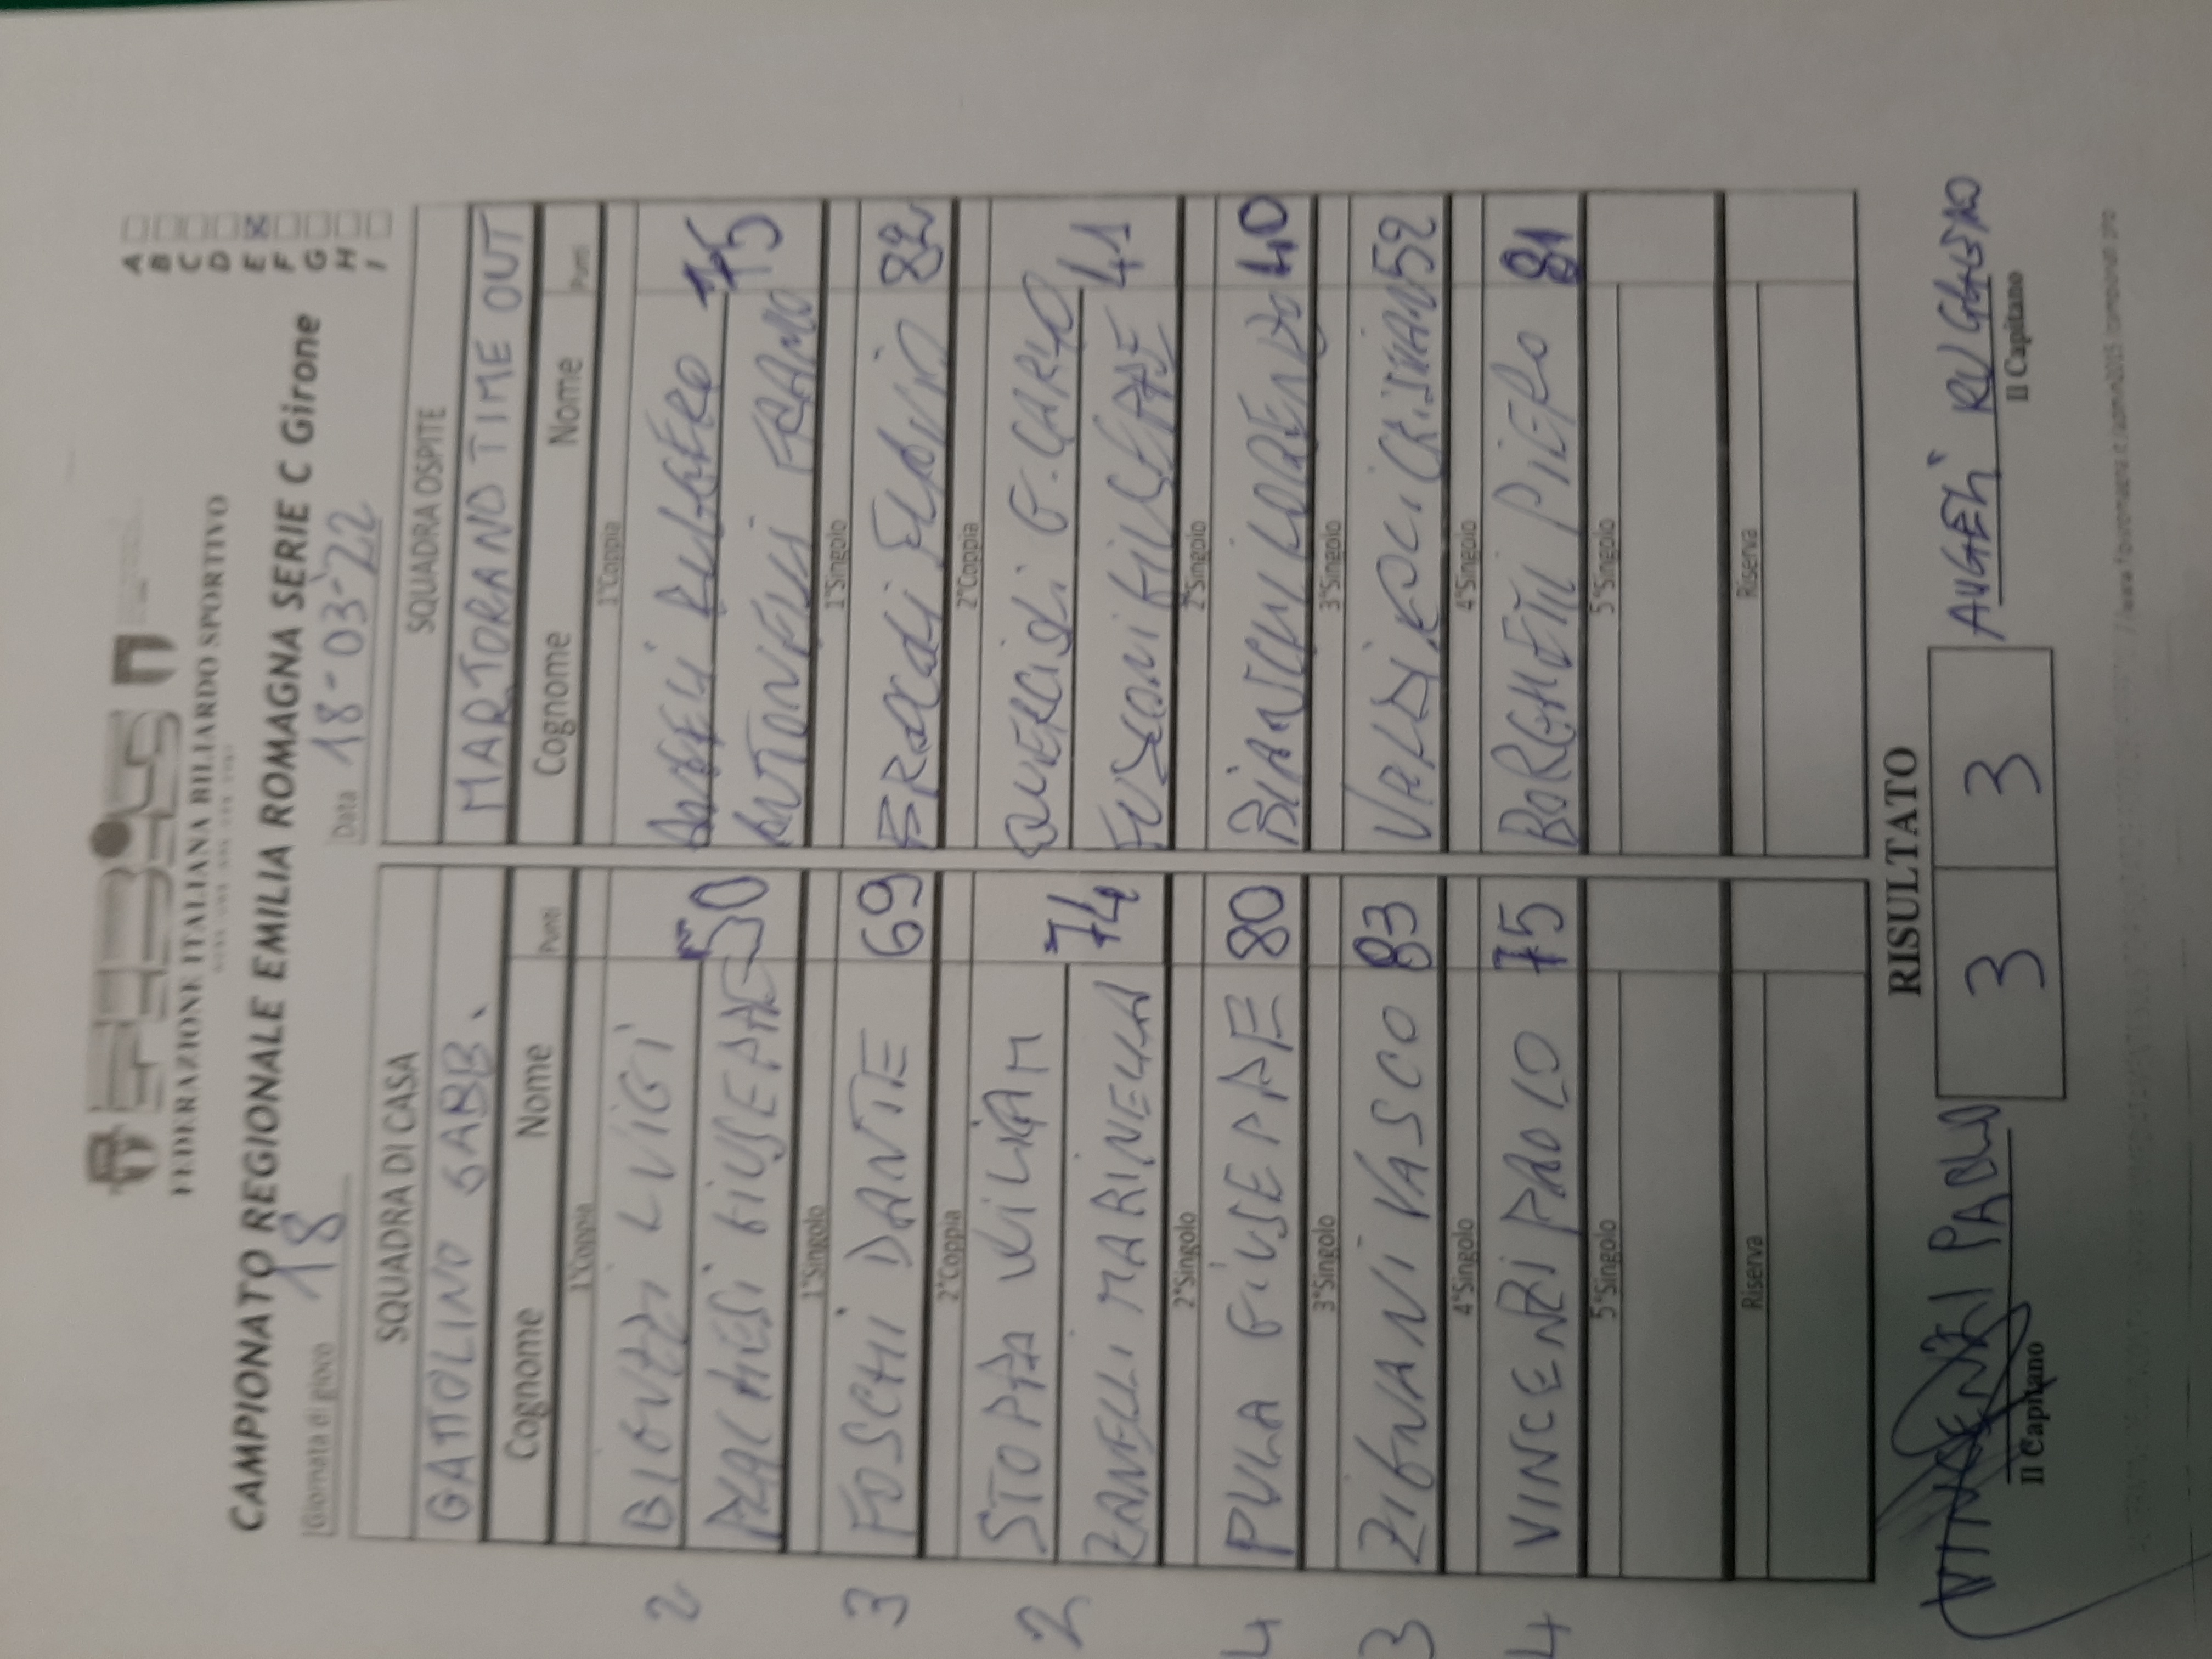 FEDERAZIONE ITALIANA BILIARDO SPORTIVO
CAMPIONATO REGIONALE EMILIA ROMAGNA SERIE C Girone
A
B
C
D
E X
F
G
H
I
Giornata di gioco 18
Data 18-03-22
SQUADRA DI CASA
GATTOLINO GABB.
Cognome Nome Punti
1°Coppia
LUIGI
GIUSEPPE 50
1°Singolo
FOSCHI DANTE 69
2°Coppia
STOPPA WILIAM
ZANELLI MARINELLA 74
2°Singolo
PULA GIUSEPPE 80
3°Singolo
ZIGNANI VASCO 83
4°Singolo
VINCENZI PAOLO 75
5°Singolo
Riserva
2
3
2
4
3
4
SQUADRA OSPITE
MARTORANO TIME OUT
Cognome Nome Punti
1°Coppia
RUGGERO
ANTONELLI
1°Singolo
2°Coppia
QUERCIOLI G. CARLO
FUSCONI GIUSEPPE 41
2°Singolo
BIANCHI LORENZO 40
3°Singolo
CRISTIAN 52
4°Singolo
BORGHETTI PIERO 81
5°Singolo
Riserva
RISULTATO
3 3
PABLO
Il Capitano
RUGGERO
Il Capitano